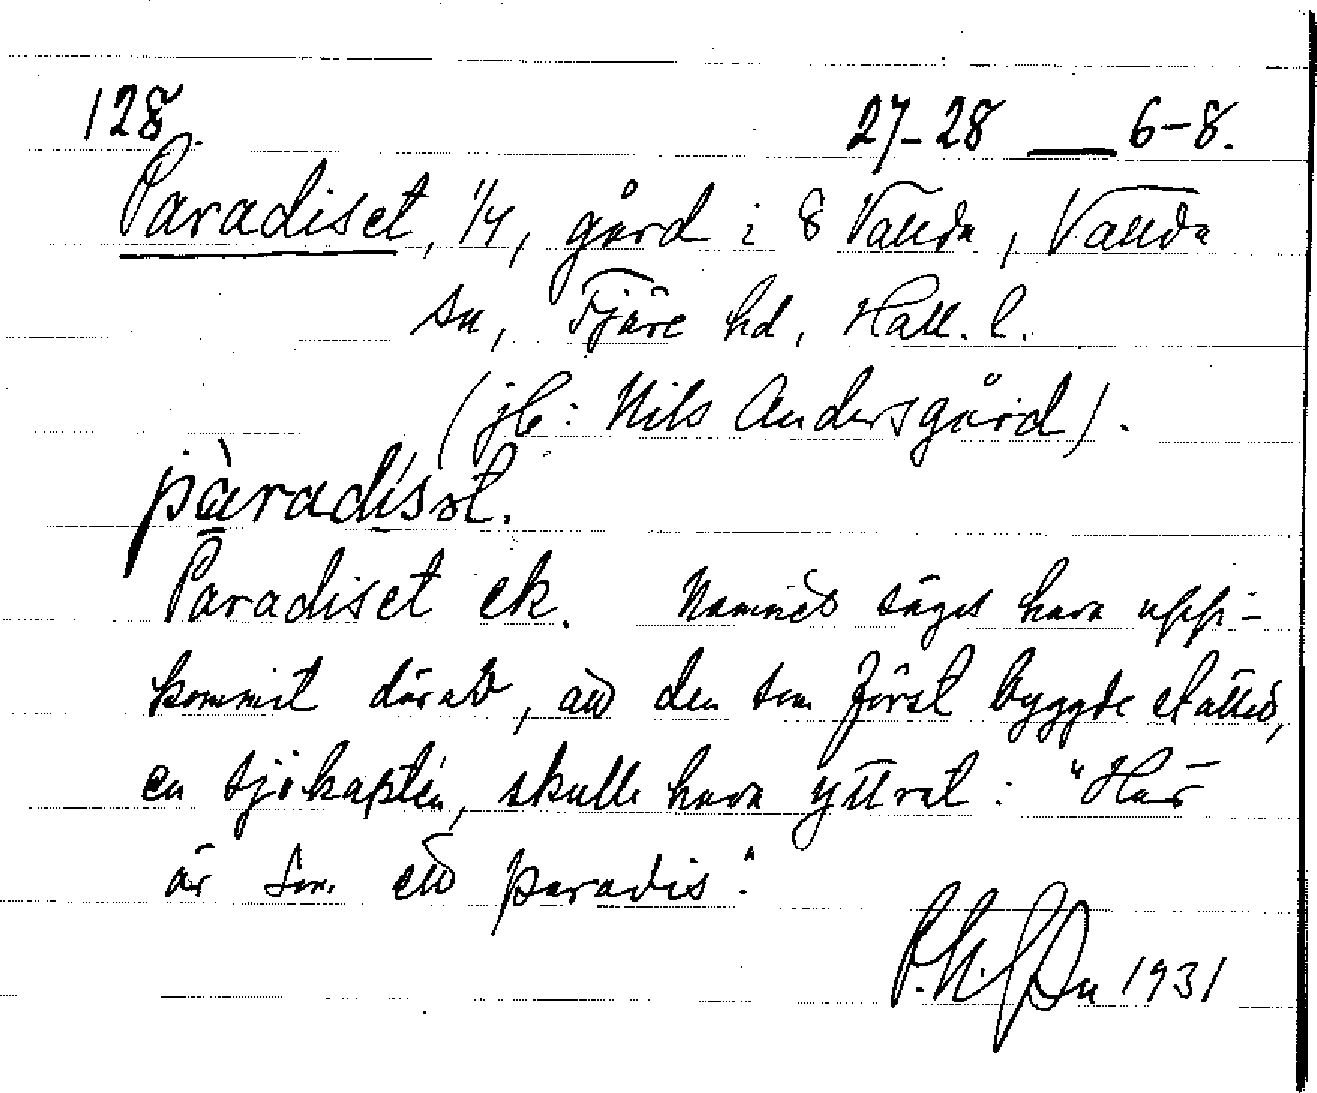 128. 27-28 — 6-8.
Paradiset, 1/4, gård i 8 Vallda, Vallda
sn, Fjäre hd, Hall. l.
(jb: Nils Andersgård).
pàradísət.
Paradiset ek. Namnet säges hava upp-
kommit därav, att den som först byggde stället,
en sjökaptén, skulle hava yttrat: "Här
är som ett paradis".
1931